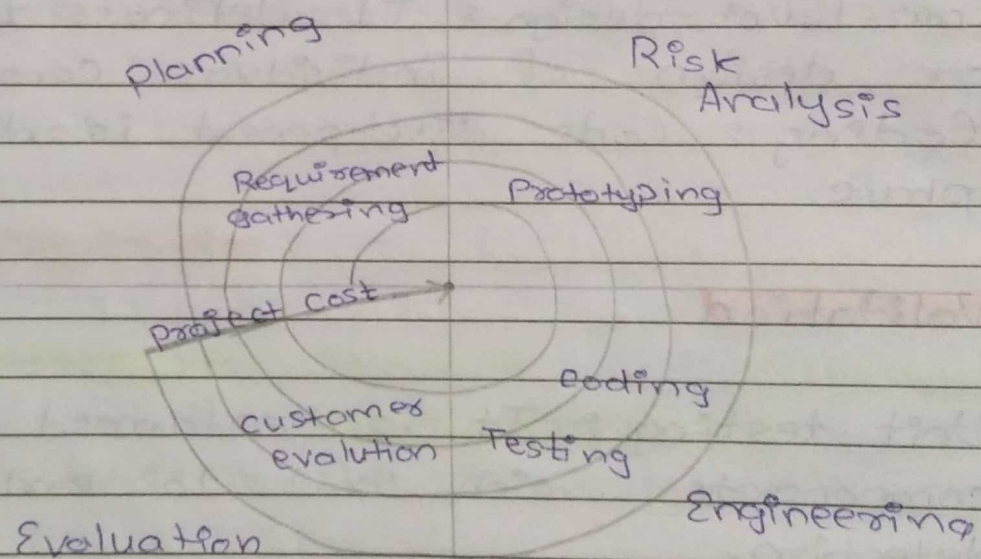 Planning
Risk
Analysis
Requirement
gathering
Prototyping
Project cost
coding
customer
evalution
Testing
Engineering
Evaluation